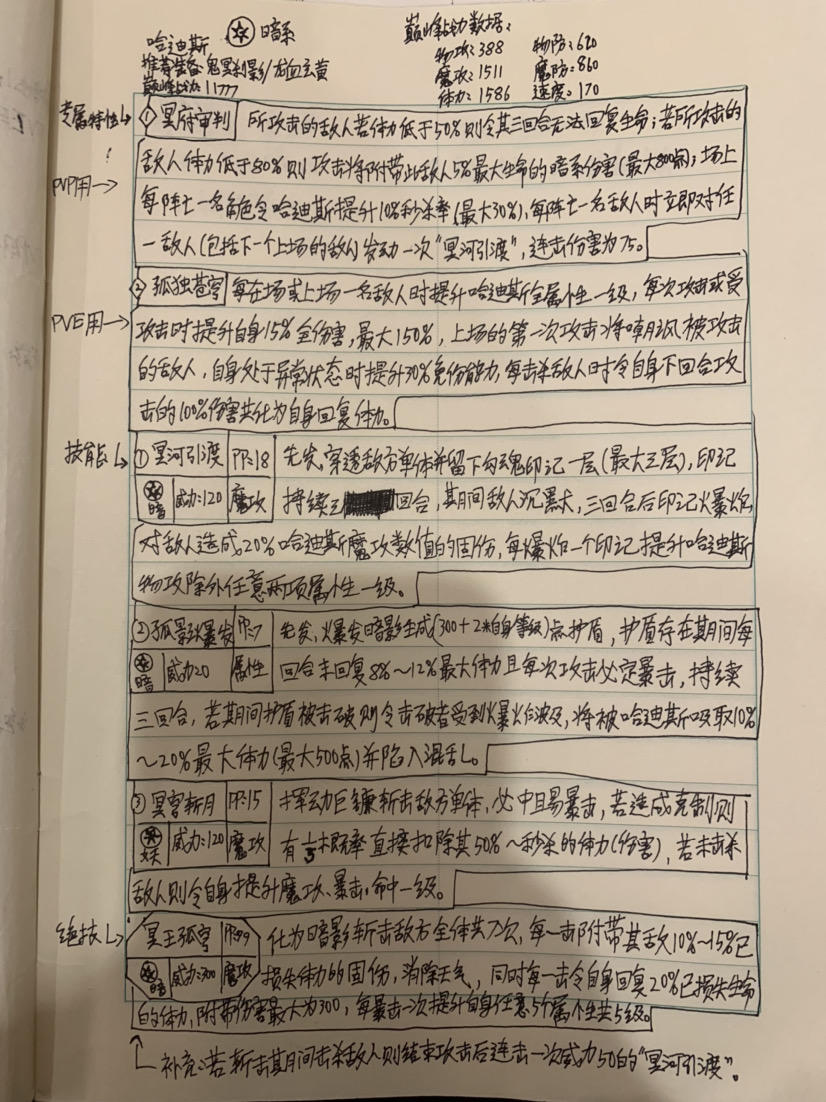 哈迪斯 暗系 巅峰战力数据:
推荐装备:鬼冥刹影/龙血玄黄 物攻:388 物防:620
巅峰战力:11777 魔攻:1511 魔防:860
体力:1586 速度:170
专属特性 ①冥府审判 所攻击的敌人若体力低于50%则令其三回合无法回复生命;若所攻击的
PVP用→ 敌人体力低于80%则攻击将附带此敌人5%最大生命的暗系伤害(最大800点);场上
每阵亡一名角色令哈迪斯提升10%秒杀率(最大30%),每阵亡一名敌人时立即对任
一敌人(包括下一个上场的敌人)发动一次"冥河引渡",连击伤害为75。
②孤独苍穹 每在场或上场一名敌人时提升哈迪斯全属性一级,每次攻击或受
PVE用→ 攻击时提升自身15%全伤害,最大150%,上场的第一次攻击将嘲讽被攻击
的敌人,自身处于异常状态时提升30%免伤能力,每击杀敌人时令自身下回合攻
击的100%伤害共化为自身回复体力。
技能 ①冥河引渡 PP:18 先发,穿透敌方单体并留下勾魂印记一层(最大三层),印记
暗 威力:120 魔攻 持续三回合,其期间敌人沉默,三回合后印记爆炸,
对敌人造成20%哈迪斯魔攻数值的固伤,每爆炸一个印记提升哈迪斯
物攻除外任意两项属性一级。
②孤影爆发 PP:7 先发,爆发暗影生成(300+2*自身等级)点护盾,护盾存在其期间每
暗 威力:20 属性 回合末回复8%~12%最大体力且每次攻击必定暴击,持续
三回合,若期间护盾被击破则令击破者受到爆炸波及,将被哈迪斯吸取10%
~20%最大体力(最大500点)并陷入混乱。
③冥宫斩月 PP:15 挥动巨镰斩击敌方单体,必中且易暴击,若造成克制则
妖 威力:120 魔攻 有1/3概率直接扣除其50%~秒杀的体力(伤害),若未击杀
敌人则令自身提升魔攻、暴击、命中一级。
绝技 冥王孤穹 PP:99 化为暗影斩击敌方全体共7次,每一击附带其敌10%~15%已
暗 威力:300 魔攻 损失体力的固伤,消除天气,同时每一击令自身回复20%已损失生命
的体力,附带伤害最大为300,每暴击一次提升自身任意5个属性共5级。
补充:若斩击其期间击杀敌人则结束攻击后连击一次威力50的"冥河引渡"。